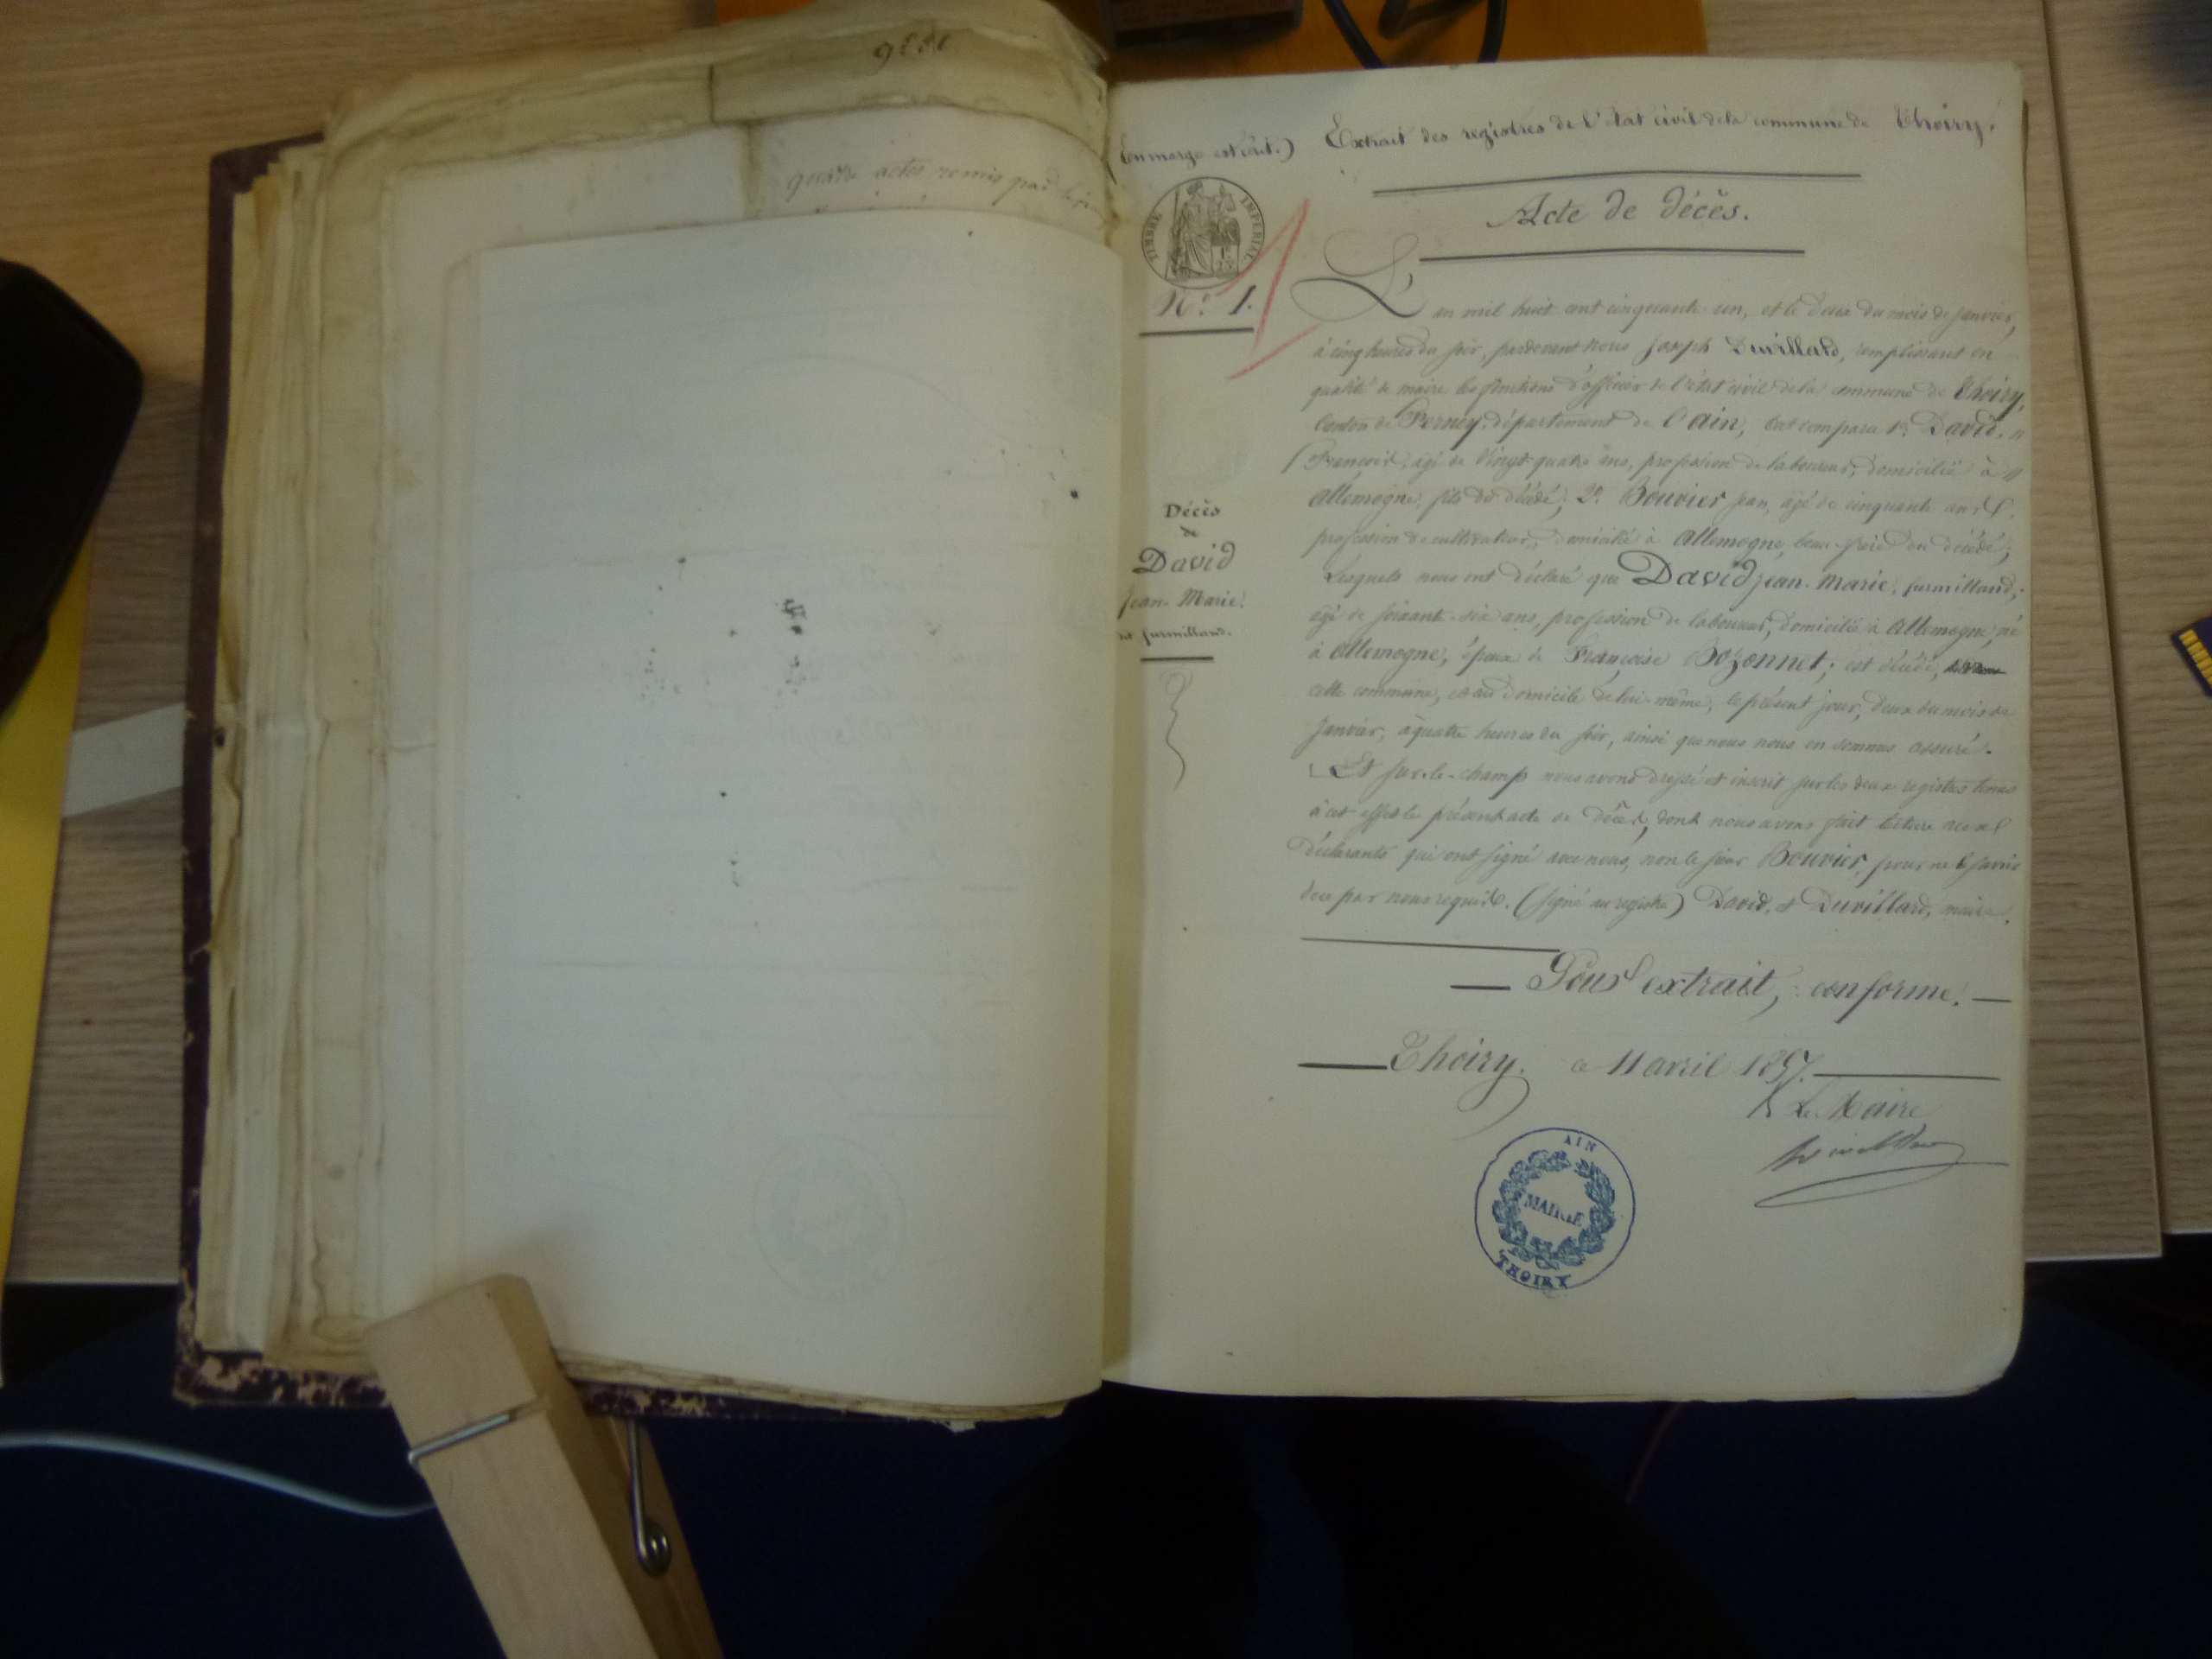 quatre actes remis par
En marge est écrit.)
Extrait des registres de l'état civil de la commune de Thoiry.
TIMBRE IMPERIAL
Acte de décès.
N.° 1.
L'an mil huit cent cinquante-un, et le deux du mois de janvier,
à cinq heures du soir, pardevant nous Joseph Duvillard, remplissant en
qualité de maire les fonctions d'officier de l'état civil de la commune de Thoiry,
Canton de Ferney, département de l'ain, est comparu 1.° David
François, âgé de vingt-quatre ans, profession de laboureur, domicilié à
Allemogne, fils du décédé; 2.° Bouvier Jean, âgé de cinquante ans,
profession de cultivateur, domicilié à Allemogne, beau-frère du décédé;
Lesquels nous ont déclaré que David Jean-Marie, furmilland,
âgé de soixante-six ans, profession de laboureur, domicilié à Allemogne, né
à Allemogne, époux de Françoise Bozonnet; est décédé,
cette commune, et au domicile de lui-même, le présent jour, deux du mois de
Janvier, à quatre heures du soir, ainsi que nous nous en sommes assuré.
Et sur-le-champ nous avons dressé et inscrit sur les deux registres tenus
à cet effet le présent acte de décès, dont nous avons fait lecture aux
déclarants qui ont signé avec nous, non le sieur Bouvier, pour ne le savoir
de ce par nous requis. (signé au registre) David, et Duvillard, maire.
Décès
de
David
Jean-Marie.
dit furmilland.
Pour extrait, conforme.
Thoiry. ce 11 avril 1857.
Le Maire
AIN
MAIRIE
THOIRY